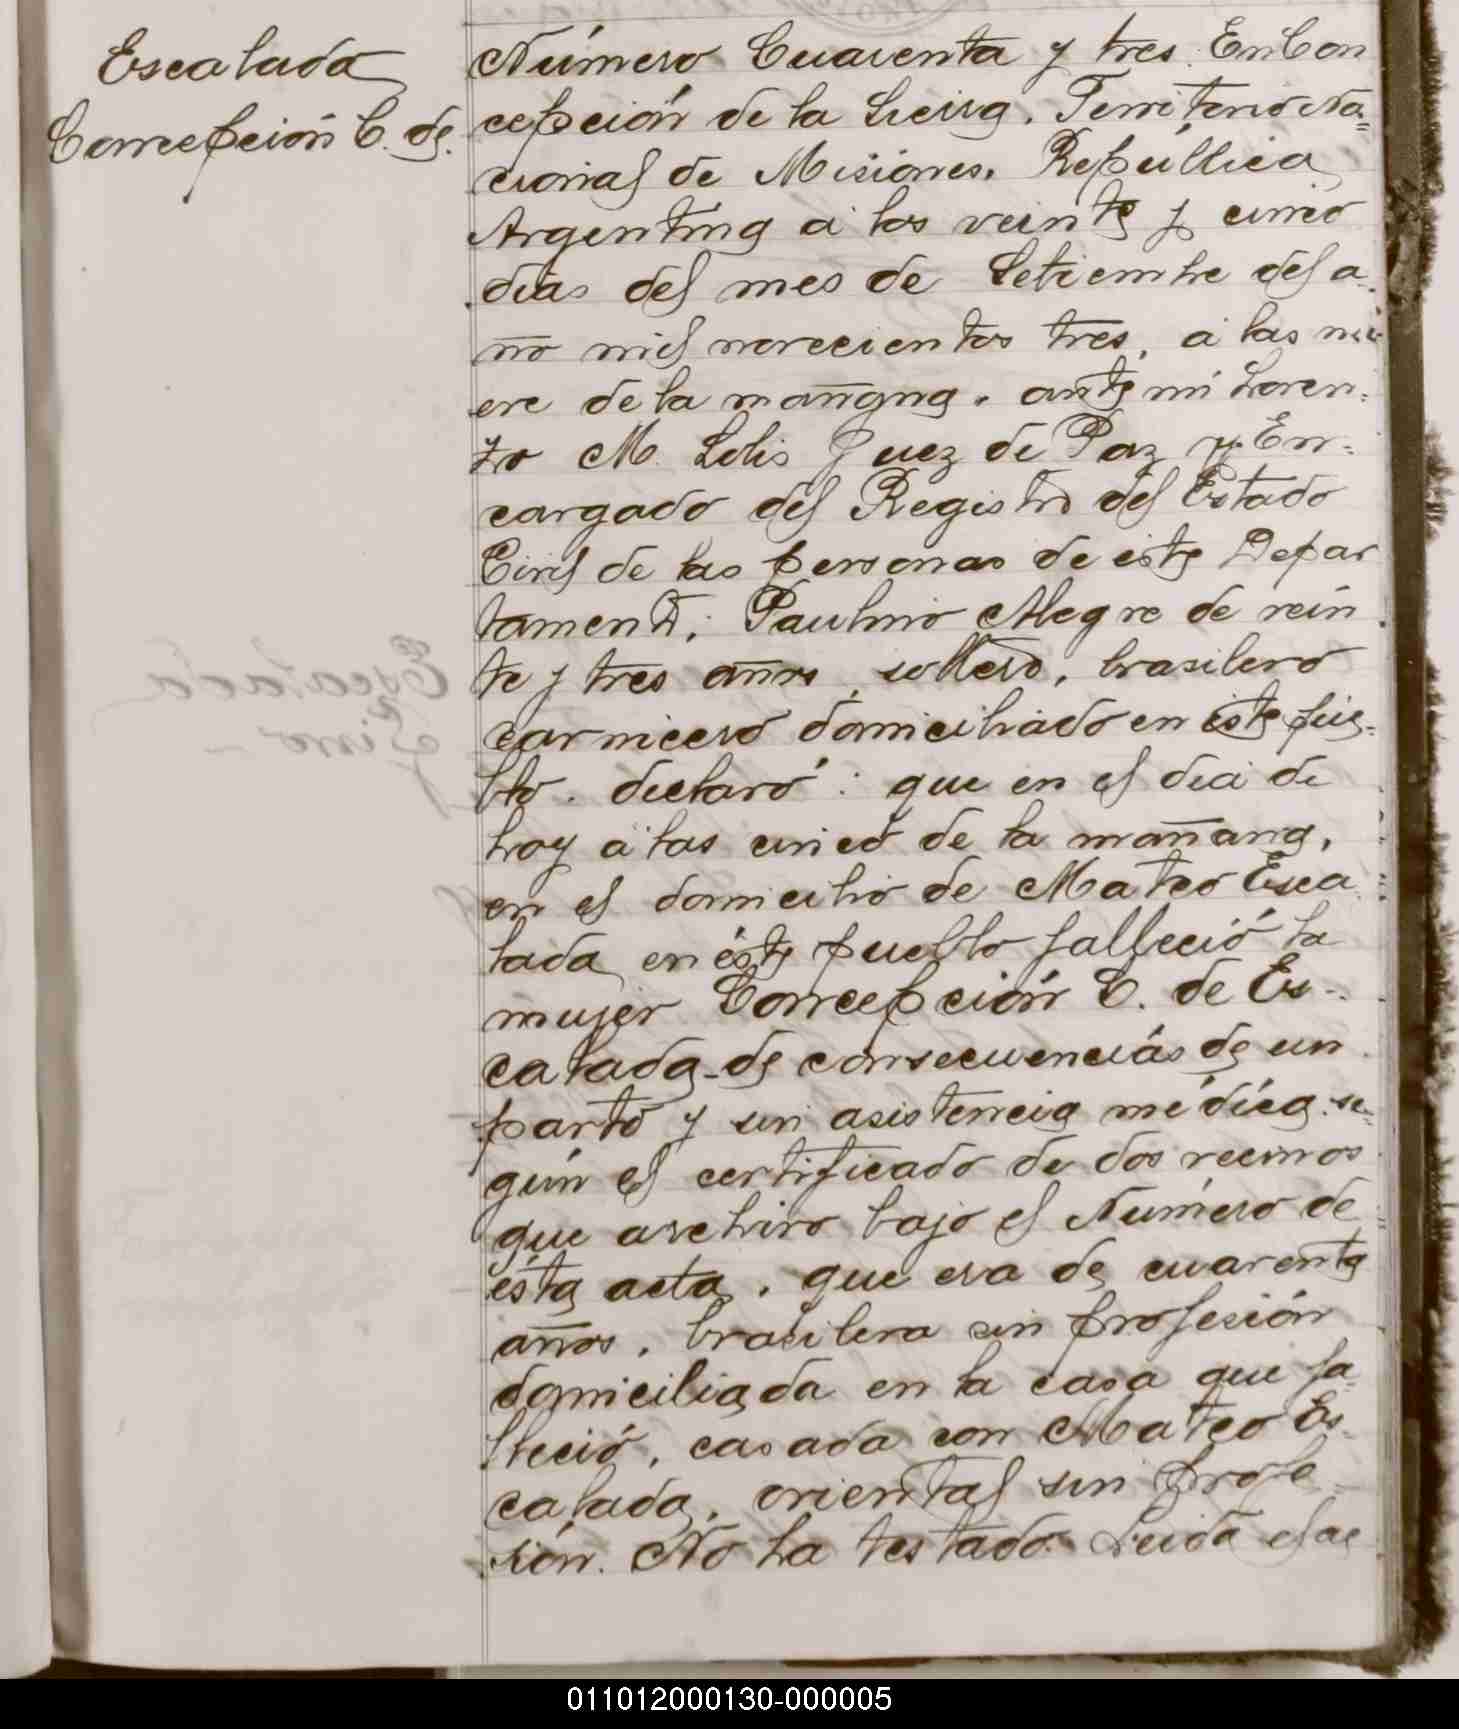 Escalada
Concepción C. de.
Número Cuarenta y tres. En Con
cepción de la Sierra. Territorio Na=
cional de Misiones. República
Argentina a los veinte y cinco
dias del mes de Setiembre del a-
ño mil novecientos tres, a las nu
eve de la mañana. ante mi Loren-
zo M. Solis Juez de Paz y En-
cargado del Registro del Estado
Civil de las personas de este Depar
tamento; Paulino Alegre de vein
te y tres años, soltero, brasilero
carnicero domiciliado en este pue-
blo. declaró: que en el dia de
hoy a las cinco de la mañana,
en el domicilio de Mateo Esca
lada en éste pueblo falleció la
mujer Concepción C. de Es-
calada de consecuencias de un
parto y sin asistencia médica se-
gún el certificado de dos vecinos
que archivo bajo el Número de
ésta acta. que era de cuarenta
años. brasilera sin profesión
domiciliada en la casa que fa-
lleció, casada con Mateo Es-
calada, oriental sin profe
sión. No ha testado. Leida el ac
011012000130-000005